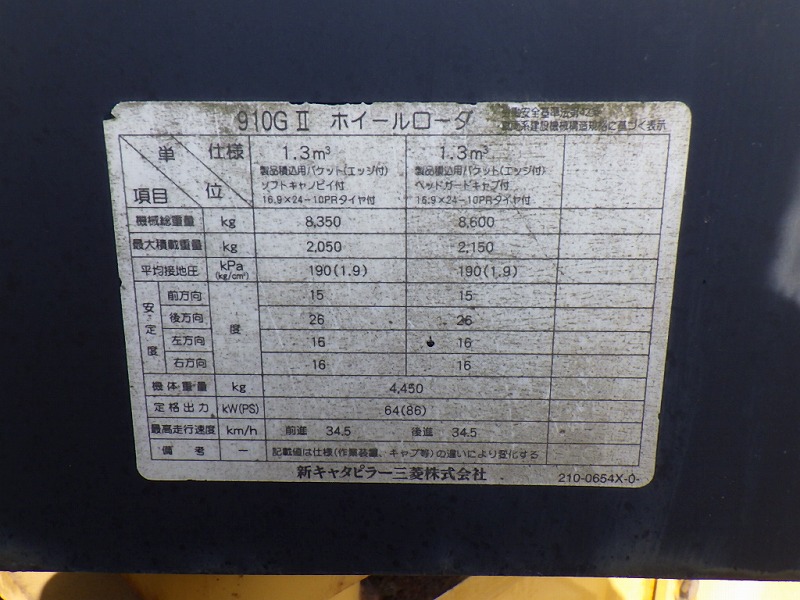 910G II ホイールローダ
労働安全衛生法第42条
車両系建設機械構造規格に基づく表示
単位 仕様
項目
1.3m³ 1.3m³
製品積込用バケット(エッジ付) 製品積込用バケット(エッジ付)
ソフトキャノピイ付 ヘッドガードキャブ付
16.9×24-10PRタイヤ付 16.9×24-10PRタイヤ付
機械総重量 kg 8,350 8,600
最大積載重量 kg 2,050 2,150
平均接地圧 kPa (kg/cm²) 190(1.9) 190(1.9)
安定度 度
前方向 15 15
後方向 26 26
左方向 16 16
右方向 16 16
機体重量 kg 4,450
定格出力 kW(PS) 64(86)
最高走行速度 km/h 前進 34.5 後進 34.5
備考 ー 記載値は仕様(作業装置、キャブ等)の違いにより変化する
新キャタピラー三菱株式会社
210-0654X-0-